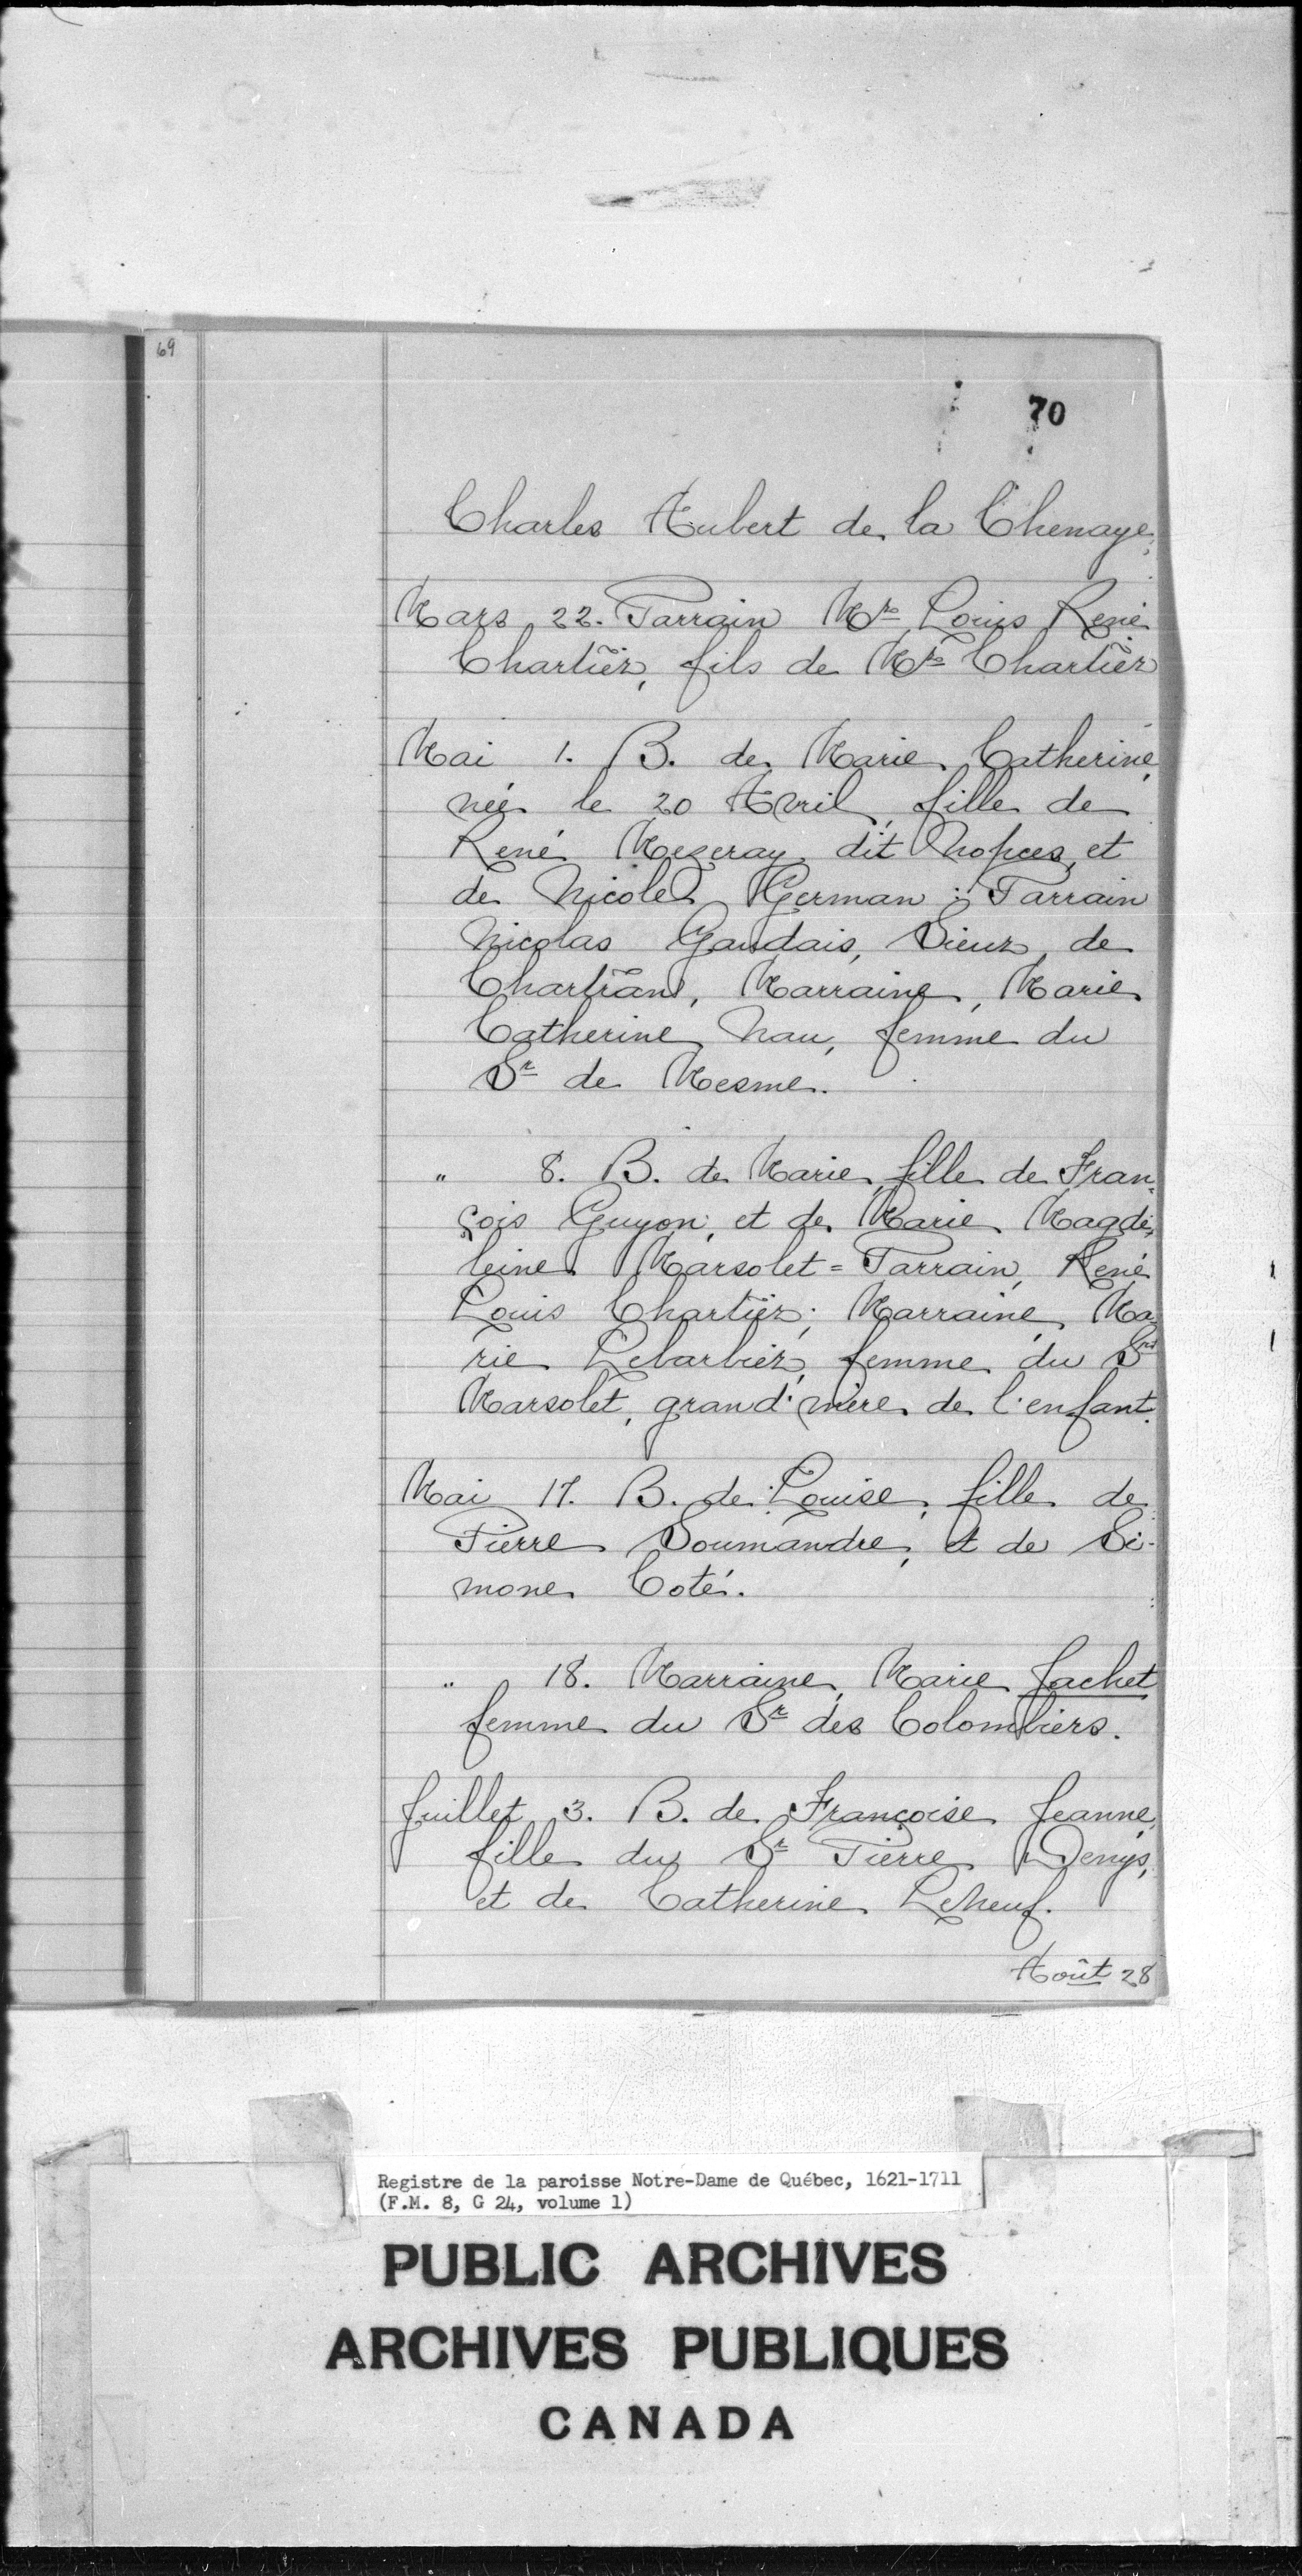 69
70
Charles Aubert de la Chenaye.
Mars 22. Parrain Mre Louis René
Chartier, fils de Mre Chartier
Mai 1. B. de Marie Catherine,
née le 20 Avril, fille de
René Mezeray dit Nopces, et
de Nicole German ; Parrain
Nicolas Gaudais, Sieur de
Chartran, Marraine, Marie
Catherine Nau, femme du
Sr de Mesme.
" 8. B. de Marie, fille de Fran-
çois Guyon, et de Marie Magde-
leine Marsolet = Parrain, René
Louis Chartier ; Marraine, Ma-
rie Lebarbier, femme du Sr
Marsolet, grand'mère de l'enfant.
Mai 17. B. de Louise, fille de
Pierre Soumandre, et de Si-
mone Coté.
" 18. Marraine, Marie Jachet
femme du Sr des Colombiers.
Juillet 3. B. de Françoise Jeanne,
fille du Sr Pierre Denys,
et de Catherine Leneuf.
Août 28
Registre de la paroisse Notre-Dame de Québec, 1621-1711
(F.M. 8, G 24, volume 1)
PUBLIC ARCHIVES
ARCHIVES PUBLIQUES
CANADA